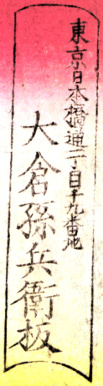 東京日本橋通一丁目十九番地
大倉孫兵衛板